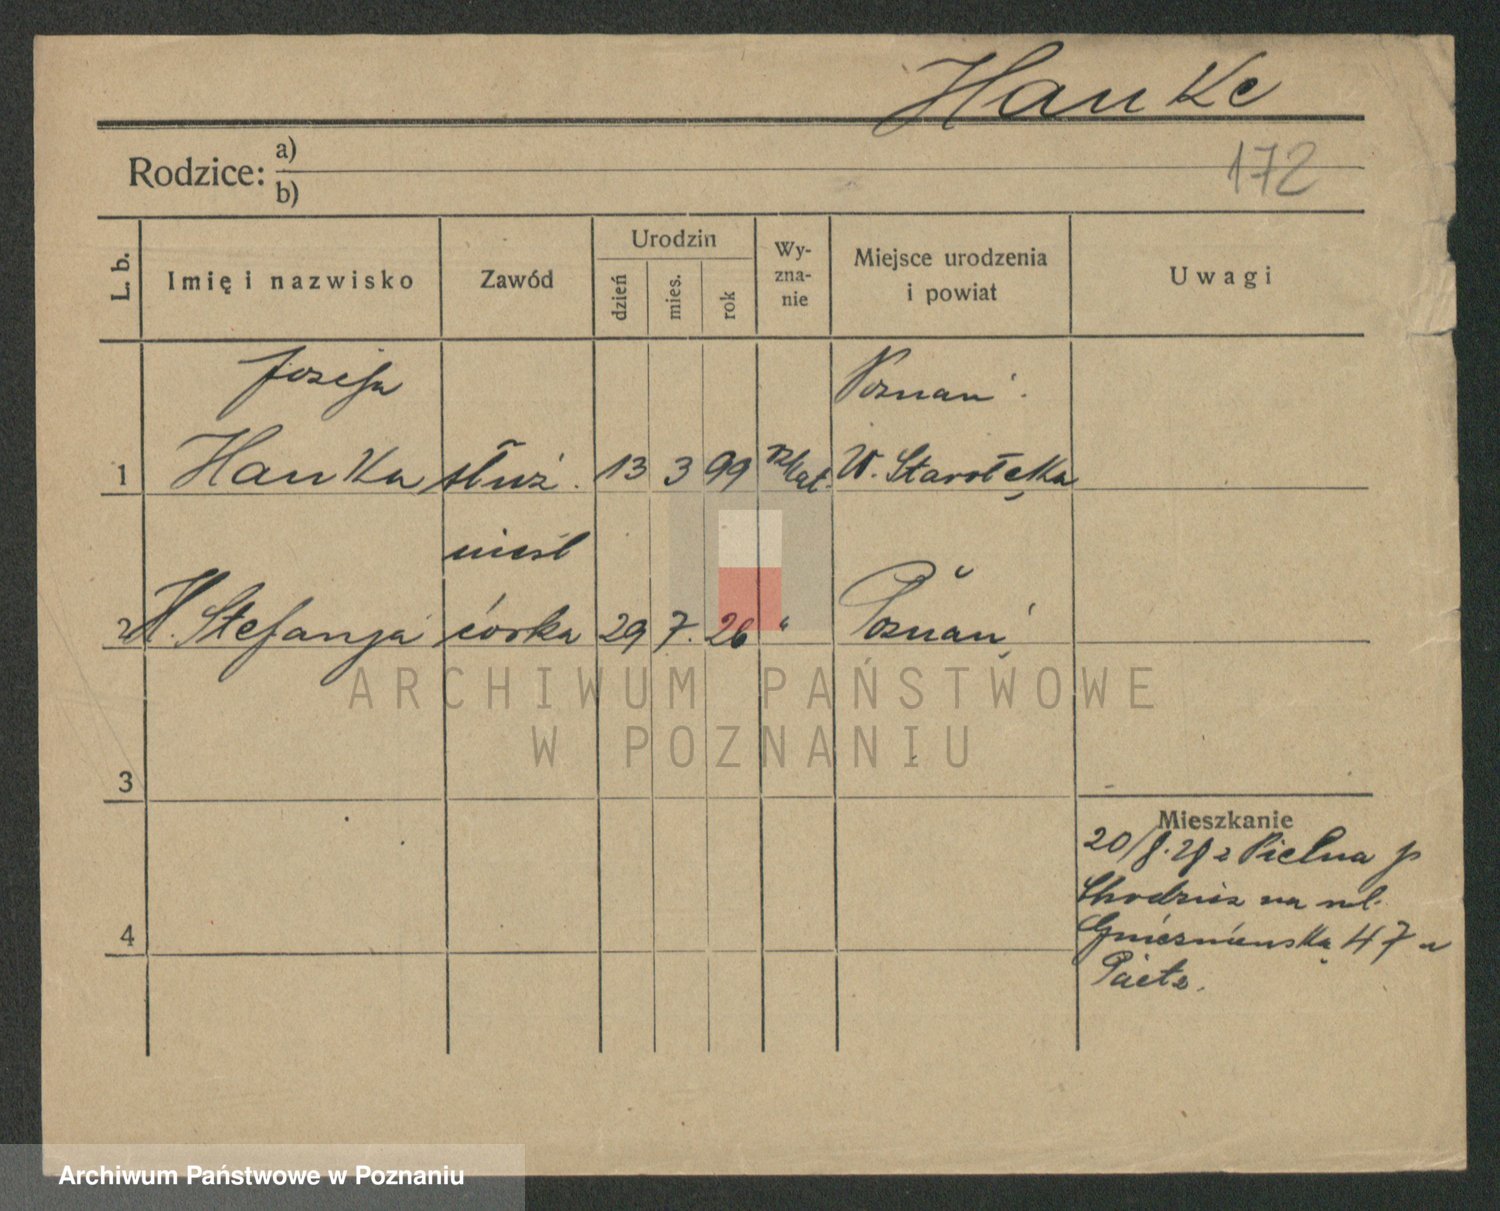 Hanke
172
Rodzice: a)
b)
L. b. Imię i nazwisko Zawód Urodzin dzień mies. rok Wy-zna-nie Miejsce urodzenia i powiat Uwagi
Józefa Poznań
1 Hanka służ. 13 3 99 rzkat. W. Starołęka
nieśl
2 H. Stefanja córka 29 7. 26 " Poznań
ARCHIWUM PAŃSTWOWE
W POZNANIU
3
Mieszkanie
20/8. 28 z Pielna p
Chodzież na ul.
4
Gnieźnieńską 47 u
Paetz.
Archiwum Państwowe w Poznaniu